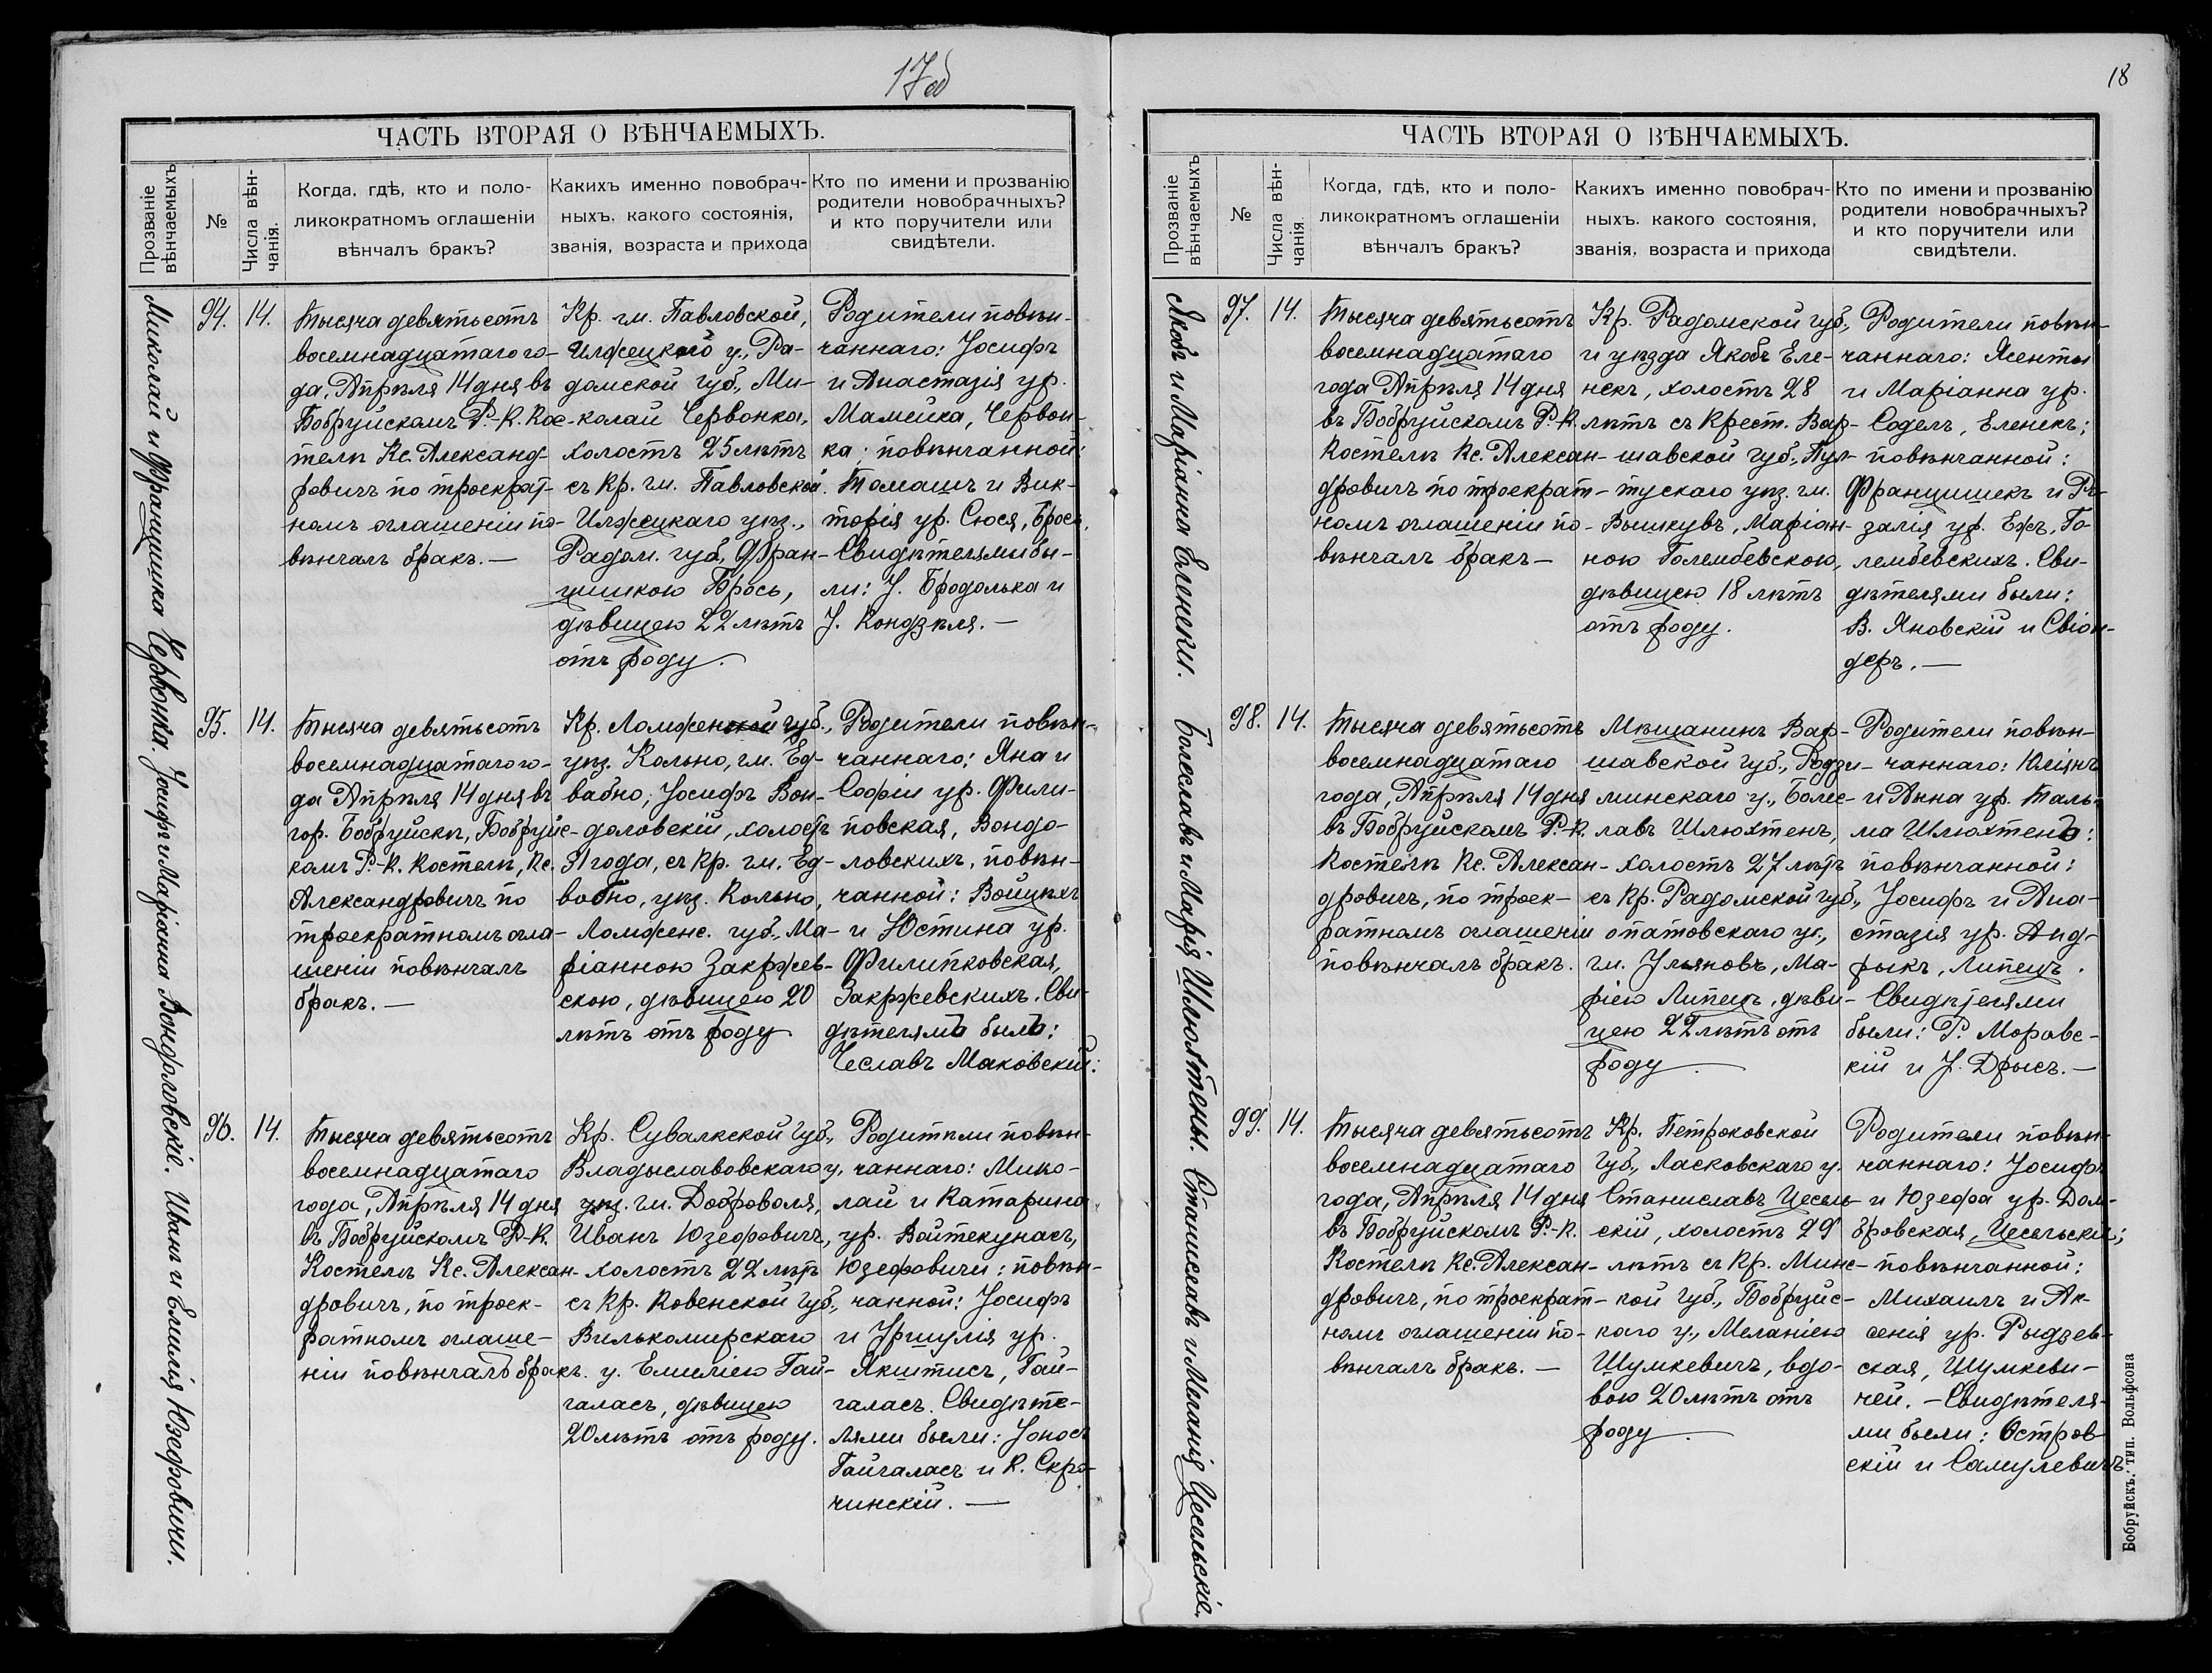 17об
ЧАСТЬ ВТОРАЯ О ВѢНЧАЕМЫХЪ.
Прозваніе
вѣнчаемыхъ
№
Числа вѣн-
чанія.
Когда, гдѣ, кто и поло-
ликократномъ оглашеніи
вѣнчалъ бракъ?
Какихъ именно повобрач-
ныхъ, какого состоянія,
званія, возраста и прихода
Кто по имени и прозванію
родители новобрачныхъ?
и кто поручители или
свидѣтели.
Миколай и Францишка Червонка.
94.
14.
Тысяча девятьсотъ
восемнадцатаго го-
да, Апрѣля 14 дня въ
Бобруйскомъ Р.-К. Кос-
телѣ Кс. Александ-
ровичъ по троекрат-
номъ оглашеніи по-
вѣнчалъ бракъ. —
Кр. гм. Павловской,
Илжецкого у., Ра-
домской губ., Ми-
колай Червонка,
холостъ 25 лѣтъ
съ кр. гм. Павловской
Илжецкаго уѣз.,
Радом. губ., Фран-
цишкою Брось,
дѣвицею 22 лѣтъ
отъ роду.
Родители повѣн-
чаннаго: Іосифъ
и Анастазія ур.
Мамейка, Червон-
ка; повѣнчанной:
Томашъ и Вик-
торія ур. Сюся, Брось.
Свидѣтелями бы-
ли: І. Бродолька и
І. Кондзѣля. —
Іосифъ и Маріанна Вондоловскіе.
95.
14.
Тысяча девятьсотъ
восемнадцатаго го-
да Апрѣля 14 дня въ
гор. Бобруйскѣ, Бобруйс-
комъ Р.-К. Костелѣ, Кс.
Александровичъ по
троекратномъ огла-
шеніи повѣнчалъ
бракъ. —
Кр. Ломженской губ.,
уѣз. Кольно, гм. Ед-
вабно, Іосифъ Вон-
доловскій, холостъ
31 года, съ кр. гм. Ед-
вабно, уѣз. Кольно,
Ломженс. губ., Ма-
ріанною Закржев-
скою, дѣвицею 20
лѣтъ отъ роду
Родители повѣн-
чаннаго: Яна и
Софіи ур. Фили-
повская, Вондо-
ловскихъ, повѣн-
чанной: Войцѣхъ
и Юстина ур.
Филипковская,
Закржевскихъ. Сви-
дѣтелямъ былъ:
Чеславъ Маковскій.
Иванъ и Емилія Юзефовичи.
96.
14.
Тысяча девятьсотъ
восемнадцатаго
года, Апрѣля 14 дня
въ Бобруйскомъ Р-К.
Костелѣ Кс. Алексан-
дровичъ, по троек-
ратномъ оглаше-
ніи повѣнчалъ бракъ.
Кр. Сувалкской губ.,
Владыславовскаго у,
уѣз. гм. Доброволя,
Иванъ Юзефовичъ,
холостъ 22 лѣтъ
съ кр. Ковенской губ.,
Вилькомирскаго
у. Емиліею Гай-
галасъ, дѣвицею
20 лѣтъ отъ роду.
Родители повѣн-
чаннаго: Мико-
лай и Катарина
ур. Войтекунасъ,
Юзефовичи; повѣн-
чанной: Іосифъ
и Уршуля ур.
Якштисъ, Гай-
галасъ. Свидѣте-
лями были: Іонос
Гайгаласъ и К. Скро-
чинскій. —
18
ЧАСТЬ ВТОРАЯ О ВѢНЧАЕМЫХЪ.
Прозваніе
вѣнчаемыхъ
№
Числа вѣн-
чанія.
Когда, гдѣ, кто и поло-
ликократномъ оглашеніи
вѣнчалъ бракъ?
Какихъ именно повобрач-
ныхъ. какого состоянія,
званія, возраста и прихода
Кто по имени и прозванію
родители новобрачныхъ?
и кто поручители или
свидѣтели.
Якобъ и Маріанна Еленеки.
97.
14.
Тысяча девятьсотъ
восемнадцатаго
года Апрѣля 14 дня
въ Бобруйскомъ Р.-К.
Костелѣ Кс. Алексан-
дровичъ по троекрат-
номъ оглашеніи по-
вѣнчалъ бракъ —
Кр. Радомской губ.,
и уѣзда Якобъ Еле-
некъ, холостъ 28
лѣтъ съ Крест. Вар-
шавской губ., Пул-
тускаго уѣз. гм.
Вышкувъ, Маріан-
ною Голембевскою,
дѣвицею 18 лѣтъ
отъ роду.
Родители повѣн-
чаннаго: Ясенты
и Маріанна ур.
Соделъ, Еленекъ;
повѣнчанной:
Францишекъ и Ро-
залія ур. Ежъ, Го-
лембевскихъ. Сви-
дѣтелями были:
В. Яновскій и Свіон-
деръ. —
Болеславъ и Марія Шлюхтены.
98.
14.
Тысяча девятьсотъ
восемнадцатаго
года, Апрѣля 14 дня
въ Бобруйскомъ Р.-К.
Костелѣ Кс. Алексан-
дровичъ, по троек-
ратномъ оглашеніи
повѣнчалъ бракъ.
Мѣщанинъ Вар-
шавской губ., Родзи-
минскаго у., Болес-
лавъ Шлюхтенъ,
холостъ 27 лѣтъ
съ кр. Радомской губ.,
опатовскаго у.,
гм. Ульяновъ, Ма-
ріею Липецъ, дѣви-
цею 22 лѣтъ отъ
роду
Родители повѣн-
чаннаго: Юліянъ
и Анна ур. Таль-
ма Шлюхтенъ:
повѣнчанной:
Іосифъ и Ана-
стазія ур. Анд-
рыкъ, Липецъ.
Свидѣтелями
были: Р. Моравс-
кій и І. Дрысъ. —
Станиславъ и Меланія Цесельскіе.
99.
14.
Тысяча девятьсотъ
восемнадцатаго
года, Апрѣля 14 дня
въ Бобруйскомъ Р.-К.
Костелѣ Кс. Алексан-
дровичъ, по троекрат-
номъ оглашеніи по-
вѣнчалъ бракъ. —
Кр. Петроковской
губ., Ласковскаго у.
Станиславъ Цесель-
скій, холостъ 29
лѣтъ съ Кр. Минс-
кой губ., Бобруйс-
каго у., Меланіею
Шумкевичъ, вдо-
вою 20 лѣтъ отъ
роду
Родители повѣн-
чаннаго: Іосифъ
и Юзефа ур. Дом-
бровская, Цесельскіе;
повѣнчанной:
Михаилъ и Ак-
сенія ур. Рыдзев-
ская, Шумкеви-
чей. — Свидѣтеля-
ми были: Остров-
скій и Самулевичъ
Бобруйскъ, тип. Вольфсона